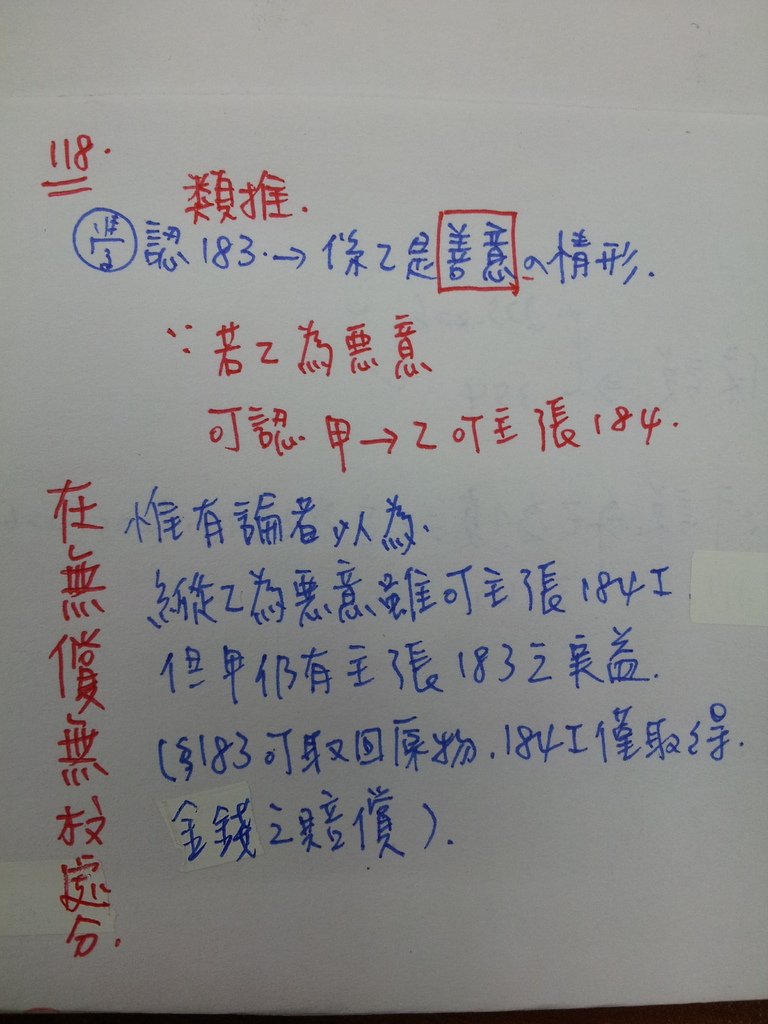 118.
類推.
學說 認183.→係乙是善意の情形.
∵若乙為惡意
可認 甲→乙可主張184.
惟有論者以為.
縱乙為惡意雖可主張184I.
但甲仍有主張183之實益.
(§183可取回原物.184I僅取得.
金錢之賠償).
在無償無权處分.